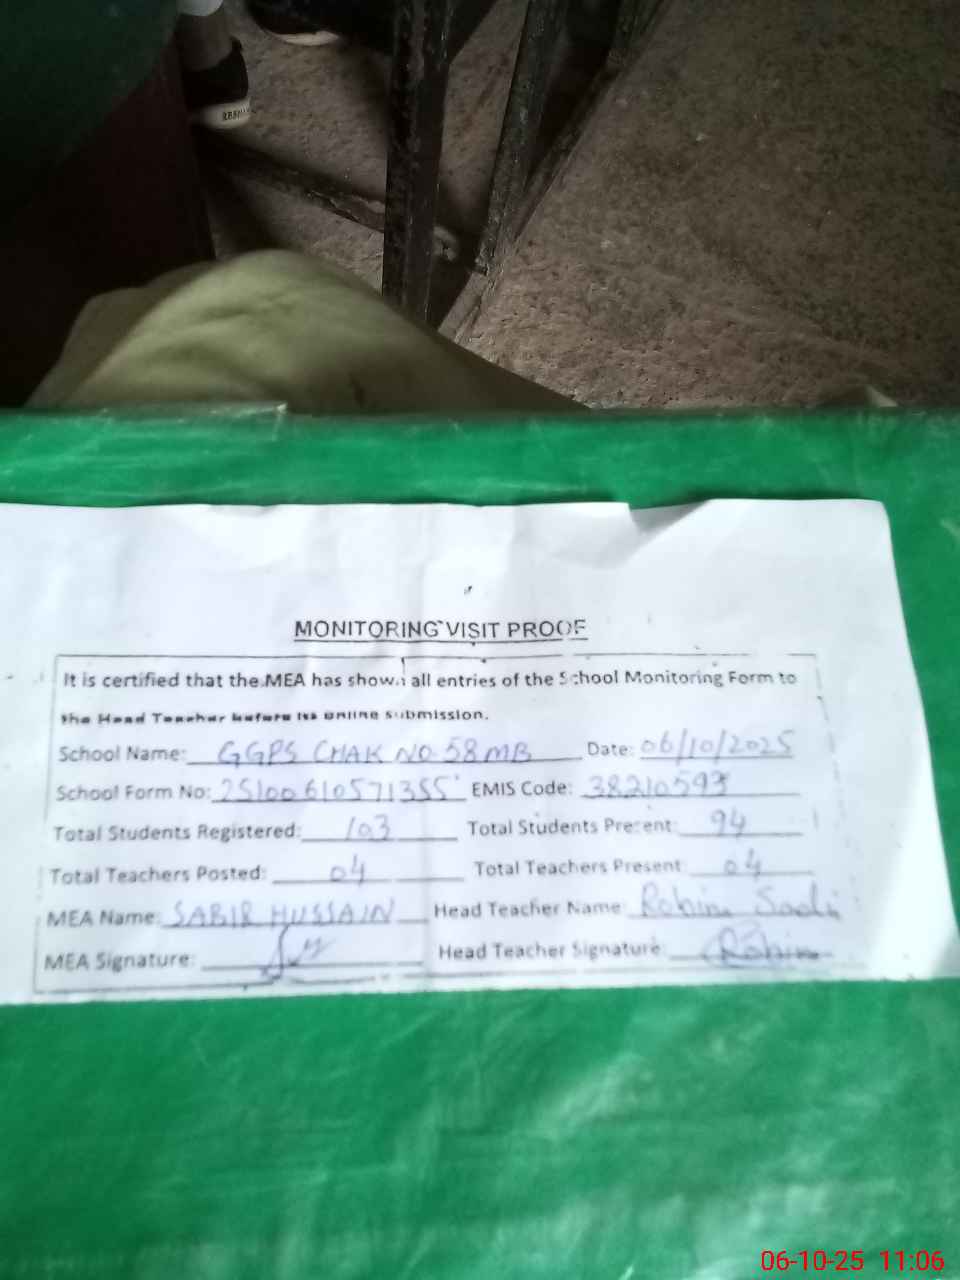 MONITORING VISIT PROOF
It is certified that the MEA has shown all entries of the School Monitoring Form to
the Head Teacher before its online submission.
School Name: GGPS CHAK NO. 58 MB Date: 06/10/2025
School Form No: 25100610571355 EMIS Code: 38210593
Total Students Registered: 103 Total Students Present: 94
Total Teachers Posted: 04 Total Teachers Present: 04
MEA Name: SABIR HUSSAIN Head Teacher Name: Robina
MEA Signature: Head Teacher Signature: Robina
06-10-25 11:06